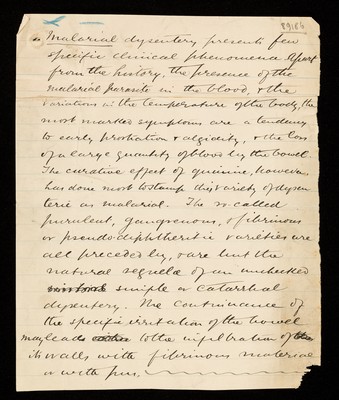 29186
Malarial dysentery presents few
specific clinical phenomena. Apart
from the history, the presence of the
malarial parasite in the blood, & the
variations in the temperature of the body, the
most marked symptoms are a tendency
to early prostration & algidity, & the loss
of a large quantity of blood by the bowel.
The curative effect of quinine, however,
has done most to stamp this variety of dysen
terie as malarial. The so called
purulent, gangrenous, & fibrinous
or pseudo-diphtheritic varieties are
all preceded by, & are but the
natural sequelæ of an unchecked
simple or catarrhal
dysentery. The continuance of
the specific irritation of the bowel
may lead to the infiltration of
its walls with fibrinous material
or with pus.